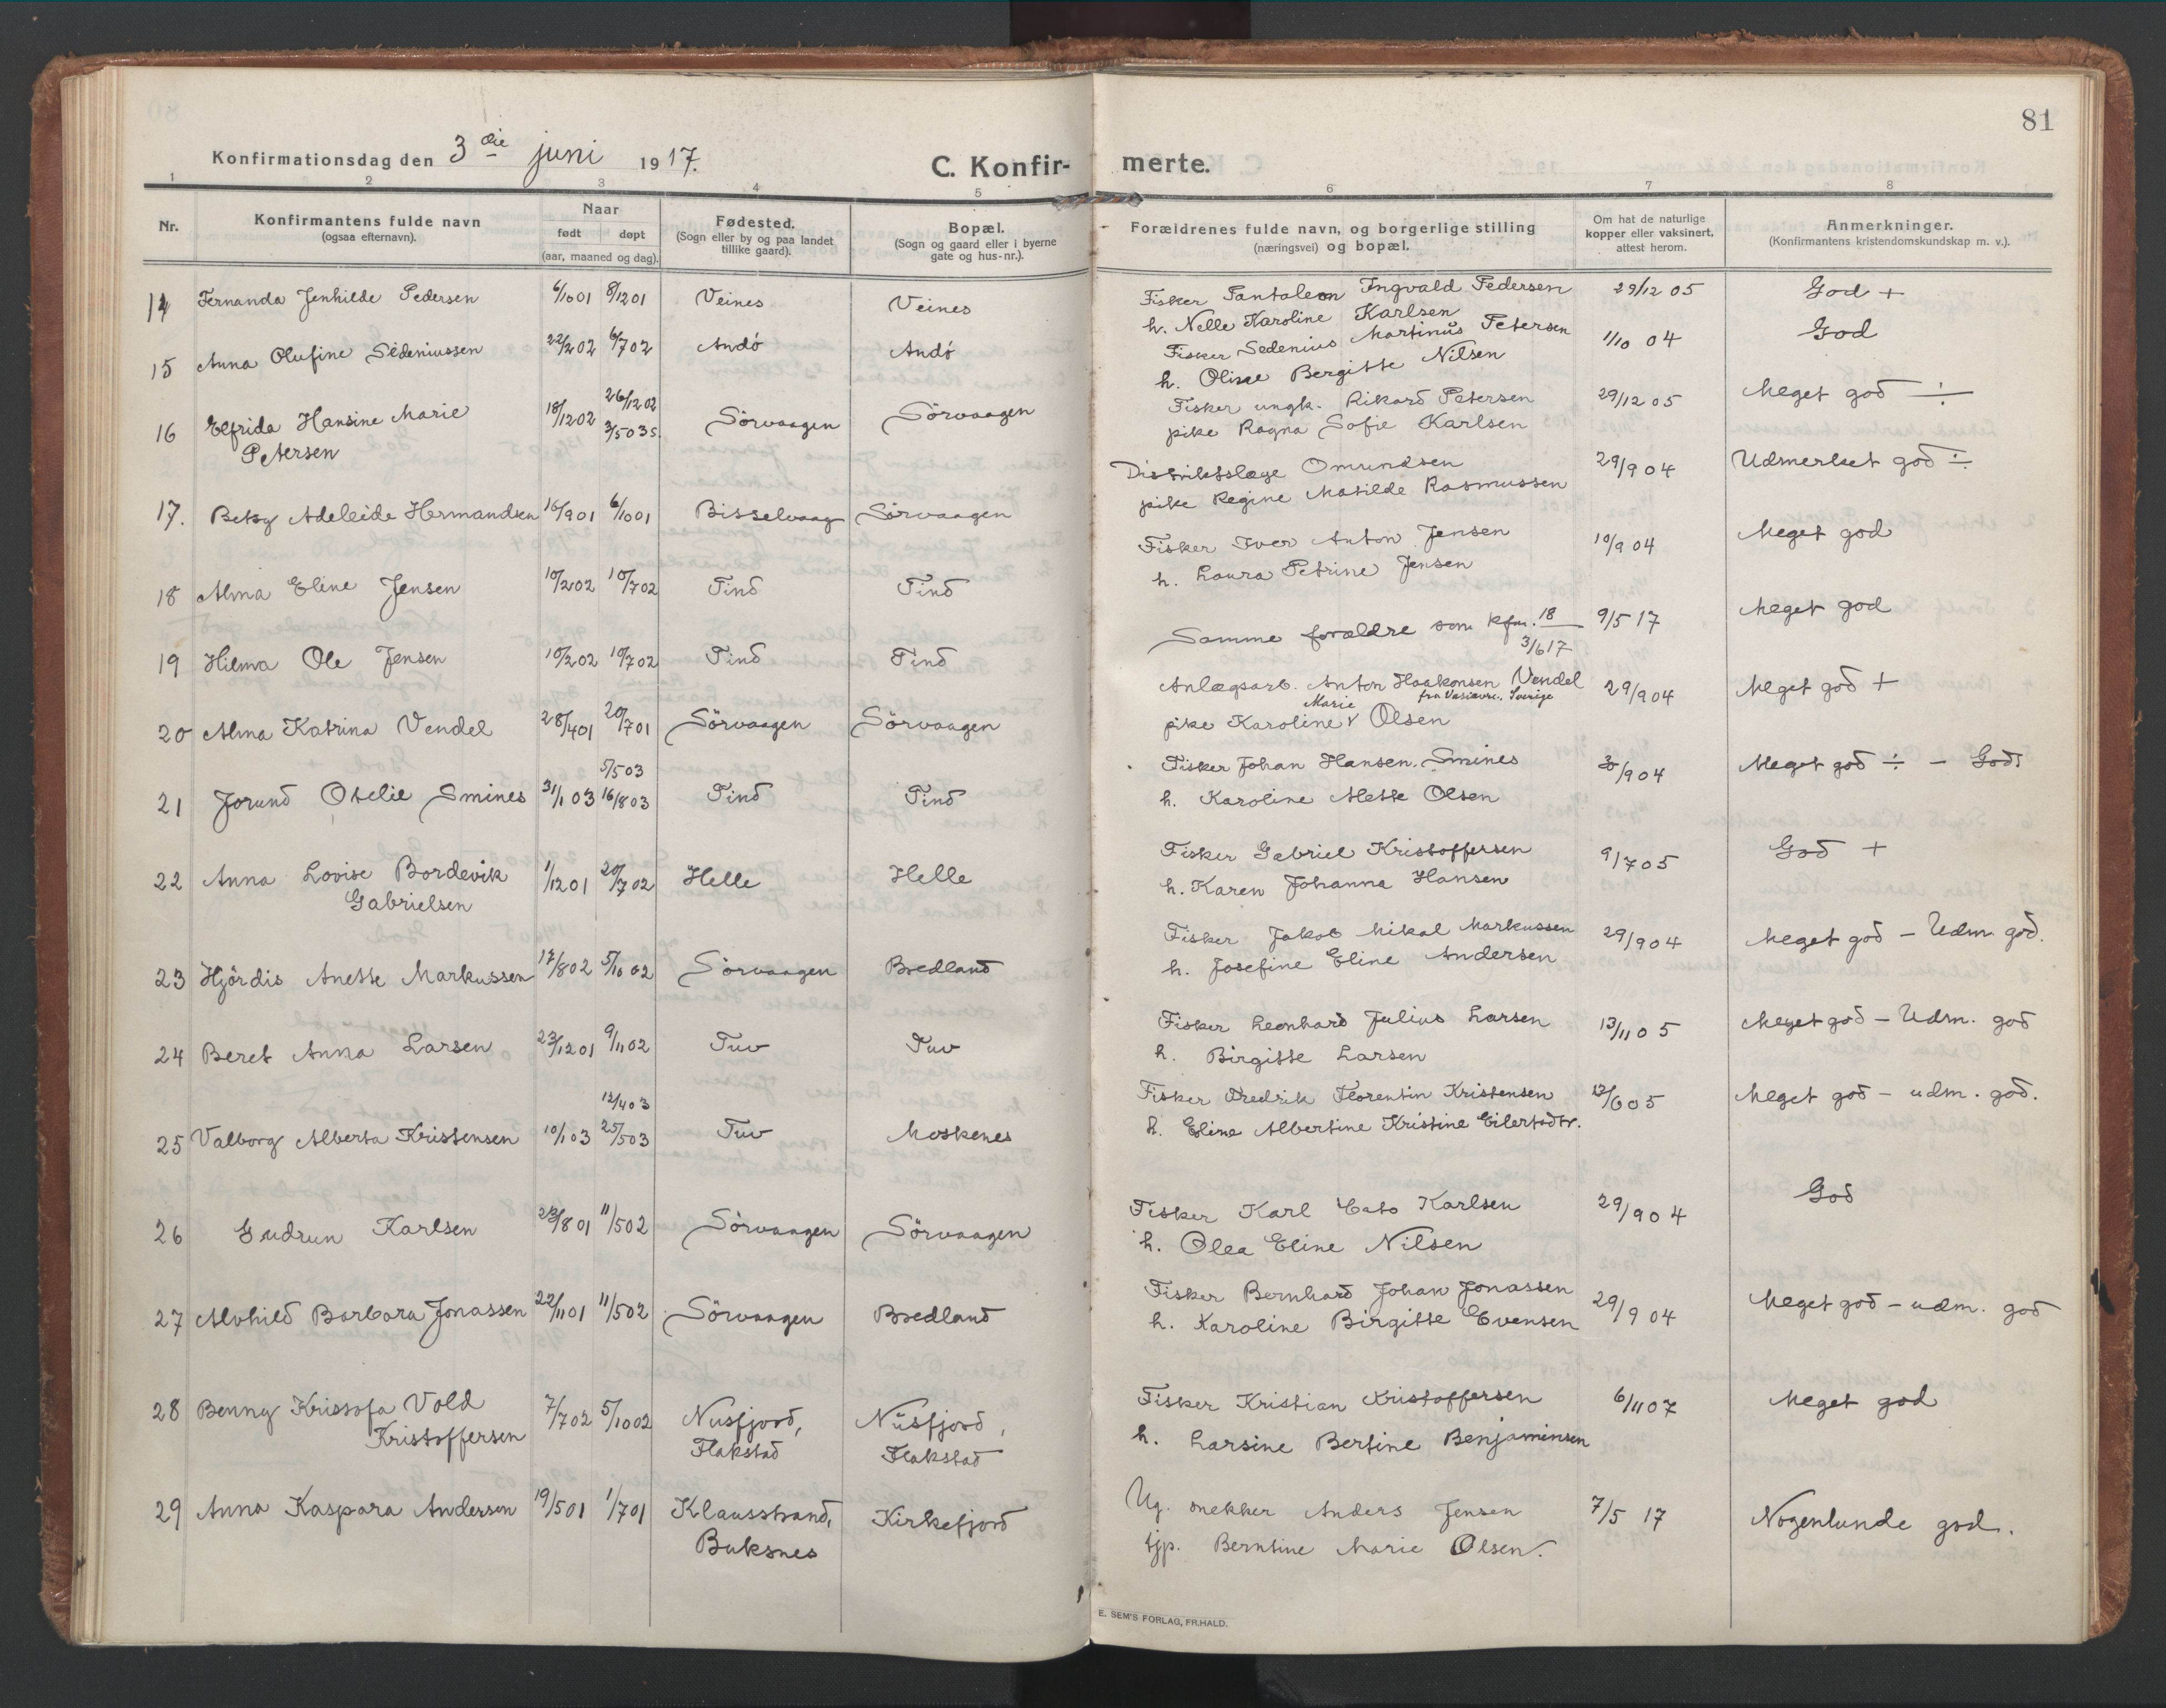 81
Konfirmationsdag den 3die juni 1917.
C. Konfirmerte.
1 2 3 4 5 6 7 8
Nr.
Konfirmantens fulde navn
(ogsaa efternavn).
Naar
født døpt
(aar, maaned og dag).
Fødested.
(Sogn eller by og paa landet
tillike gaard).
Bopæl.
(Sogn og gaard eller i byerne
gate og hus-nr.).
Forældrenes fulde navn, og borgerlige stilling
(næringsvei) og bopæl.
Om hat de naturlige
kopper eller vaksinert,
attest herom.
Anmerkninger.
(Konfirmantens kristendomskundskap m. v.).
14 Fernanda Jenhilde Pedersen 6/10 01 8/12 01 Veines Veines
Fisker Pantaleon Ingvald Pedersen 29/12 05 God +
h. Nelle Karoline Karlsen
15 Anna Olufine Sedeniussen 22/2 02 6/7 02 Andö Andö
Fisker Sedenius Martinus Petersen 1/10 04 God
h. Oline Bergitte Nilsen
16 Elfrida Hansine Marie 18/12 02 26/12 02 Sörvaagen Sörvaagen
Petersen 3/5 03 s.
Fisker ungk. Rikard Petersen 29/12 05 Meget god ÷
pike Ragna Sofie Karlsen
17. Betsy Adeleide Hermandsen 16/9 01 6/10 01 Bisselvaag Sörvaagen
Distriktslæge Omundsen 29/9 04 Udmerket god ÷
pike Regine Matilde Rasmussen
18 Alma Eline Jensen 10/2 02 10/7 02 Tind Tind
Fisker Iver Anton Jensen 10/9 04 Meget god
h. Laura Petrine Jensen
19 Hilma Ole Jensen 10/2 02 10/7 02 Tind Tind
Samme forældre som kfm. 18 9/5 17 Meget god
3/6 17
20 Alma Katrina Vendel 28/4 01 20/7 01 Sörvaagen Sörvaagen
Anlægsarb. Anton Haakonsen Vendel 29/9 04 Meget god +
fra Vasiaure, Sverige
pike Karoline Marie Olsen
21 Jorund Otelie Smines 31/1 03 5/5 03 16/8 03 Tind Tind
Fisker Johan Hansen Smines 30/9 04 Meget god ÷ – God
h. Karoline Mette Olsen
22 Anna Lovise Bordevik 1/12 01 20/7 02 Helle Helle
Gabrielsen
Fisker Gabriel Kristoffersen 9/7 05 God +
h. Karen Johanna Hansen
23 Hjördis Anette Markussen 17/8 02 5/10 02 Sörvaagen Bredland
Fisker Jakob Mikal Markussen 29/9 04 Meget god – Udm. god.
h. Josefine Eline Andersen
24 Beret Anna Larsen 23/12 01 9/11 02 Tuv Tuv
Fisker Leonhard Julius Larsen 13/11 05 Meget god – Udm. god
h. Birgitte Larsen
25 Valborg Alberta Kristensen 10/1 03 12/4 03 25/5 03 Tuv Moskenes
Fisker Fredrik Florentin Kristensen 12/6 05 Meget god – udm. god.
h. Eline Albertine Kristine Eilertsdtr.
26 Gudrun Karlsen 28/8 01 11/5 02 Sörvaagen Sörvaagen
Fisker Karl Cato Karlsen 29/9 04 God
h. Olea Eline Nilsen
27 Alvhild Barbara Jonassen 22/11 01 11/5 02 Sörvaagen Bredland
Fisker Bernhard Johan Jonassen 29/9 04 Meget god – udm. god
h. Karoline Birgitte Evensen
28 Benny Kristofa Vold 7/7 02 5/10 02 Nusfjord, Nusfjord,
Kristoffersen Flakstad Flakstad
Fisker Kristian Kristoffersen 6/11 07 Meget god
h. Larsine Bertine Benjaminsen
29 Anna Kaspara Andersen 19/5 01 1/7 01 Klausstrand, Kirkefjord
Buksnes
Ug. snekker Anders Jensen 7/5 17 Nogenlunde god.
tjp. Berntine Marie Olsen.
E. SEM'S FORLAG, FR.HALD.